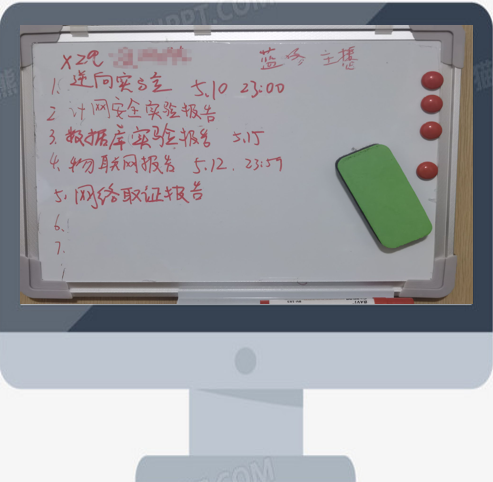 1. 逆向实验 5.10 23:00
2 计网安全实验报告
3. 数据库实验报告 5.15
4. 物联网报告 5.12. 23:59
5. 网络取证报告
6.
7.